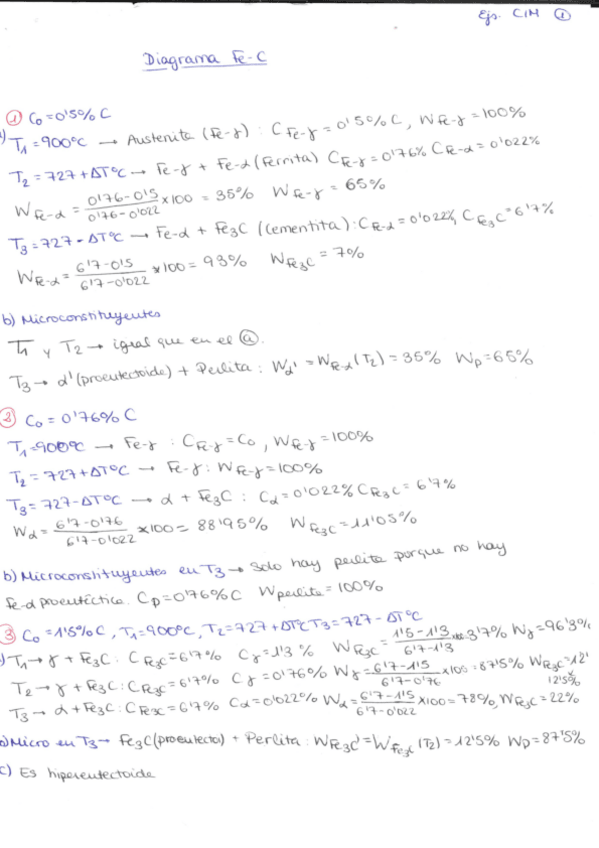 Ejs. CIM ①
Diagrama Fe-C
① C₀=0'5% C
a) T₁=900°C → Austenita (Fe-γ) : C Fe-γ = 0'5% C, W Fe-γ = 100%
T₂ = 727+ΔT°C → Fe-γ + Fe-α (Ferrita) C Fe-γ = 0'76% C Fe-α = 0'022%
W Fe-α = (0'76-0'5)/(0'76-0'022) × 100 = 35% W Fe-γ = 65%
T₃ = 727-ΔT°C → Fe-α + Fe₃C (cementita) : C Fe-α = 0'022%, C Fe₃C = 6'7%
W Fe-α = (6'7-0'5)/(6'7-0'022) × 100 = 93% W Fe₃C = 7%
b) Microconstituyentes
T₁ y T₂ → igual que en el ⓐ.
T₃ → α' (proeutectoide) + Perlita : Wα' = W Fe-α (T₂) = 35% Wp = 65%
② C₀ = 0'76% C
T₁=900°C → Fe-γ : C Fe-γ = C₀, W Fe-γ = 100%
T₂ = 727+ΔT°C → Fe-γ : W Fe-γ = 100%
T₃ = 727-ΔT°C → α + Fe₃C : Cα = 0'022% C Fe₃C = 6'7%
Wα = (6'7-0'76)/(6'7-0'022) × 100 = 88'95% W Fe₃C = 11'05%
b) Microconstituyentes en T₃ → Solo hay perlita porque no hay
Fe-α proeutéctice. Cp = 0'76% C Wperlita = 100%
③ C₀ = 1'5% C, T₁ = 900°C, T₂ = 727+ΔT°C T₃ = 727-ΔT°C
a) T₁ → γ + Fe₃C : C Fe₃C = 6'7% Cγ = 1'3% W Fe₃C = (1'5-1'3)/(6'7-1'3) = 3'7% Wγ = 96'3%
T₂ → γ + Fe₃C : C Fe₃C = 6'7% Cγ = 0'76% Wγ = (6'7-1'5)/(6'7-0'76) × 100 = 87'5% W Fe₃C = 12'5%
T₃ → α + Fe₃C : C Fe₃C = 6'7% Cα = 0'022% Wα = (6'7-1'5)/(6'7-0'022) × 100 = 78%, W Fe₃C = 22%
b) Micro en T₃ → Fe₃C (proeutecto) + Perlita : W Fe₃C' = W Fe₃C (T₂) = 12'5% Wp = 87'5%
c) Es hipereutectoide